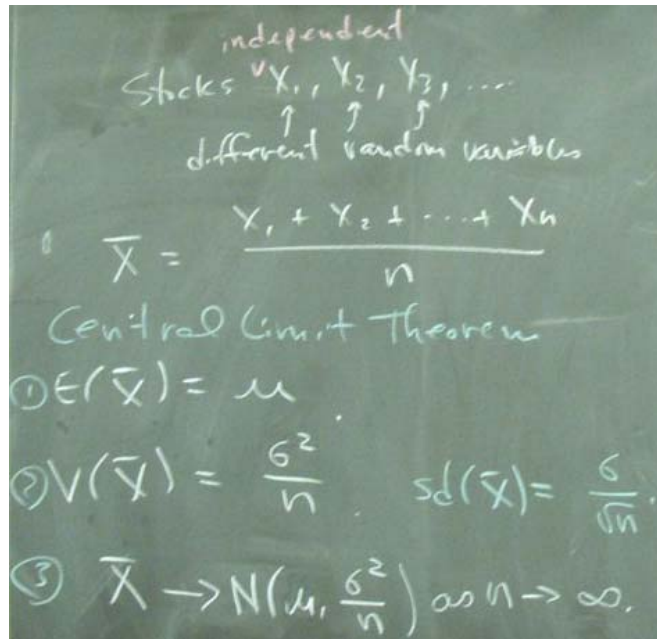 independent
Stocks X₁, X₂, X₃, ....
↑ ↑ ↑
different random variables
X̄ = (X₁ + X₂ + ··· + Xn) / n
Central Limit Theorem
① E(X̄) = μ.
② V(X̄) = σ²/n. sd(X̄) = σ/√n.
③ X̄ → N(μ, σ²/n) as n → ∞.